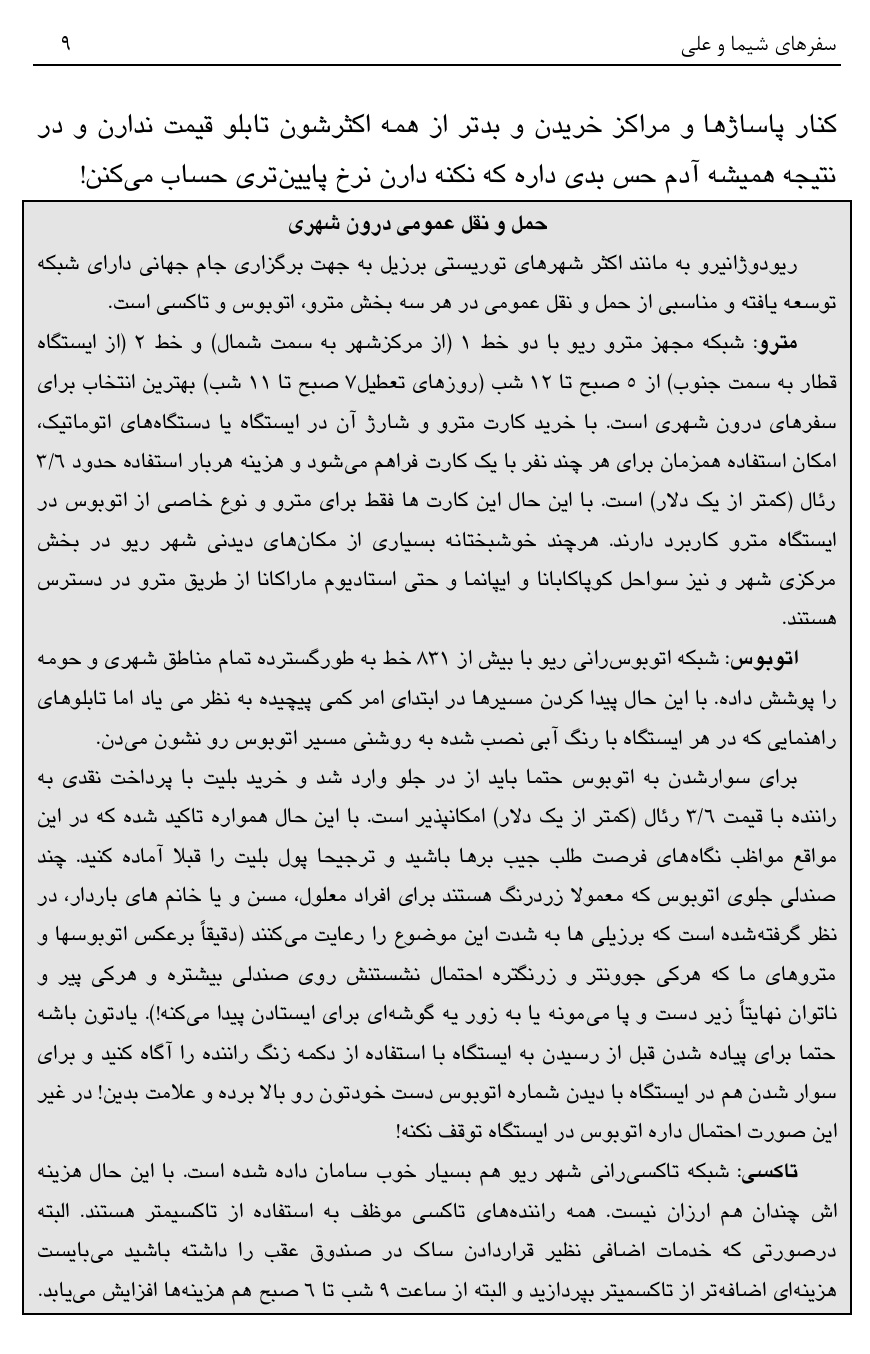 سفرهای شیما و علی ۹
کنار پاساژها و مراکز خریدن و بدتر از همه اکثرشون تابلو قیمت ندارن و در
نتیجه همیشه آدم حس بدی داره که نکنه دارن نرخ پایین‌تری حساب می‌کنن!
حمل و نقل عمومی درون شهری
ریودوژانیرو به مانند اکثر شهرهای توریستی برزیل به جهت برگزاری جام جهانی دارای شبکه
توسعه یافته و مناسبی از حمل و نقل عمومی در هر سه بخش مترو، اتوبوس و تاکسی است.
مترو: شبکه مجهز مترو ریو با دو خط ۱ (از مرکزشهر به سمت شمال) و خط ۲ (از ایستگاه
قطار به سمت جنوب) از ۵ صبح تا ۱۲ شب (روزهای تعطیل۷ صبح تا ۱۱ شب) بهترین انتخاب برای
سفرهای درون شهری است. با خرید کارت مترو و شارژ آن در ایستگاه یا دستگاه‌های اتوماتیک،
امکان استفاده همزمان برای هر چند نفر با یک کارت فراهم می‌شود و هزینه هربار استفاده حدود ۳/۶
رئال (کمتر از یک دلار) است. با این حال این کارت ها فقط برای مترو و نوع خاصی از اتوبوس در
ایستگاه مترو کاربرد دارند. هرچند خوشبختانه بسیاری از مکان‌های دیدنی شهر ریو در بخش
مرکزی شهر و نیز سواحل کوپاکابانا و ایپانما و حتی استادیوم ماراکانا از طریق مترو در دسترس
هستند.
اتوبوس: شبکه اتوبوس‌رانی ریو با بیش از ۸۳۱ خط به طورگسترده تمام مناطق شهری و حومه
را پوشش داده. با این حال پیدا کردن مسیرها در ابتدای امر کمی پیچیده به نظر می یاد اما تابلوهای
راهنمایی که در هر ایستگاه با رنگ آبی نصب شده به روشنی مسیر اتوبوس رو نشون می‌دن.
برای سوارشدن به اتوبوس حتما باید از در جلو وارد شد و خرید بلیت با پرداخت نقدی به
راننده با قیمت ۳/۶ رئال (کمتر از یک دلار) امکانپذیر است. با این حال همواره تاکید شده که در این
مواقع مواظب نگاه‌های فرصت طلب جیب برها باشید و ترجیحا پول بلیت را قبلا آماده کنید. چند
صندلی جلوی اتوبوس که معمولا زردرنگ هستند برای افراد معلول، مسن و یا خانم های باردار، در
نظر گرفته‌شده است که برزیلی ها به شدت این موضوع را رعایت می‌کنند (دقیقاً برعکس اتوبوسها و
متروهای ما که هرکی جوونتر و زرنگتره احتمال نشستنش روی صندلی بیشتره و هرکی پیر و
ناتوان نهایتاً زیر دست و پا می‌مونه یا به زور یه گوشه‌ای برای ایستادن پیدا می‌کنه!). یادتون باشه
حتما برای پیاده شدن قبل از رسیدن به ایستگاه با استفاده از دکمه زنگ راننده را آگاه کنید و برای
سوار شدن هم در ایستگاه با دیدن شماره اتوبوس دست خودتون رو بالا برده و علامت بدین! در غیر
این صورت احتمال داره اتوبوس در ایستگاه توقف نکنه!
تاکسی: شبکه تاکسی‌رانی شهر ریو هم بسیار خوب سامان داده شده است. با این حال هزینه
اش چندان هم ارزان نیست. همه راننده‌های تاکسی موظف به استفاده از تاکسیمتر هستند. البته
درصورتی که خدمات اضافی نظیر قراردادن ساک در صندوق عقب را داشته باشید می‌بایست
هزینه‌ای اضافه‌تر از تاکسمیتر بپردازید و البته از ساعت ۹ شب تا ۶ صبح هم هزینه‌ها افزایش می‌یابد.